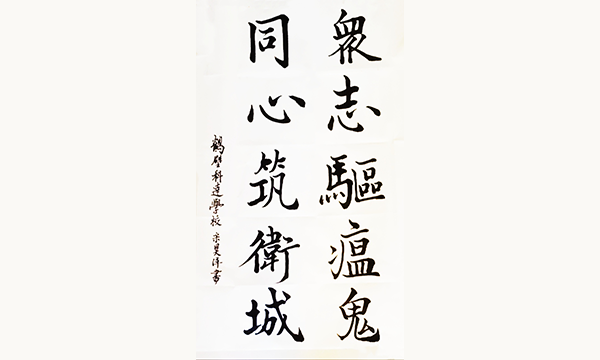 衆志驅瘟鬼
同心筑衛城
鶴壁科達學校 宗昊沣書